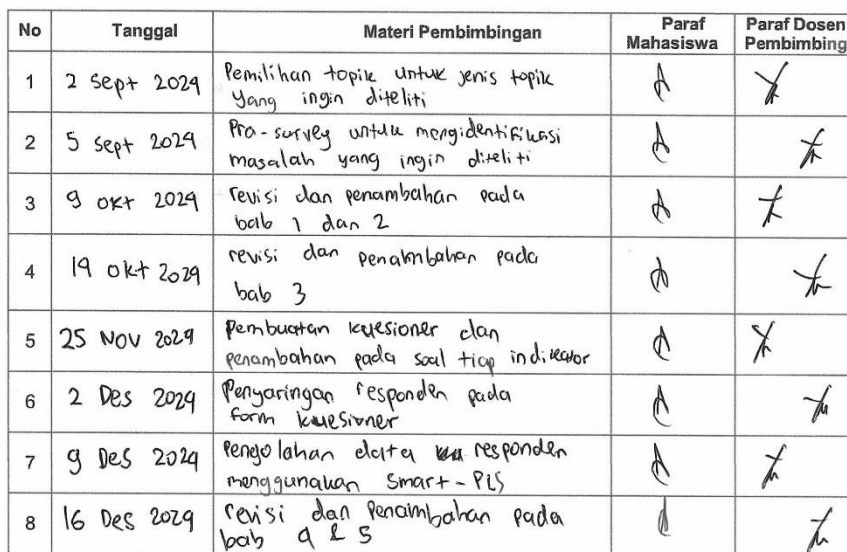 No Tanggal Materi Pembimbingan Paraf Mahasiswa Paraf Dosen Pembimbing
1 2 Sept 2024 Pemilihan topik untuk jenis topik
yang ingin diteliti
2 5 Sept 2024 Pra-survey untuk mengidentifikasi
masalah yang ingin diteliti
3 9 okt 2024 revisi dan penambahan pada
bab 1 dan 2
4 14 okt 2024 revisi dan penambahan pada
bab 3
5 25 Nov 2024 Pembuatan kuesioner dan
penambahan pada soal tiap indikator
6 2 Des 2024 Penyaringan responden pada
form kuesioner
7 9 Des 2024 Pengolahan data responden
menggunakan Smart-PLS
8 16 Des 2024 revisi dan Penambahan pada
bab 4 & 5